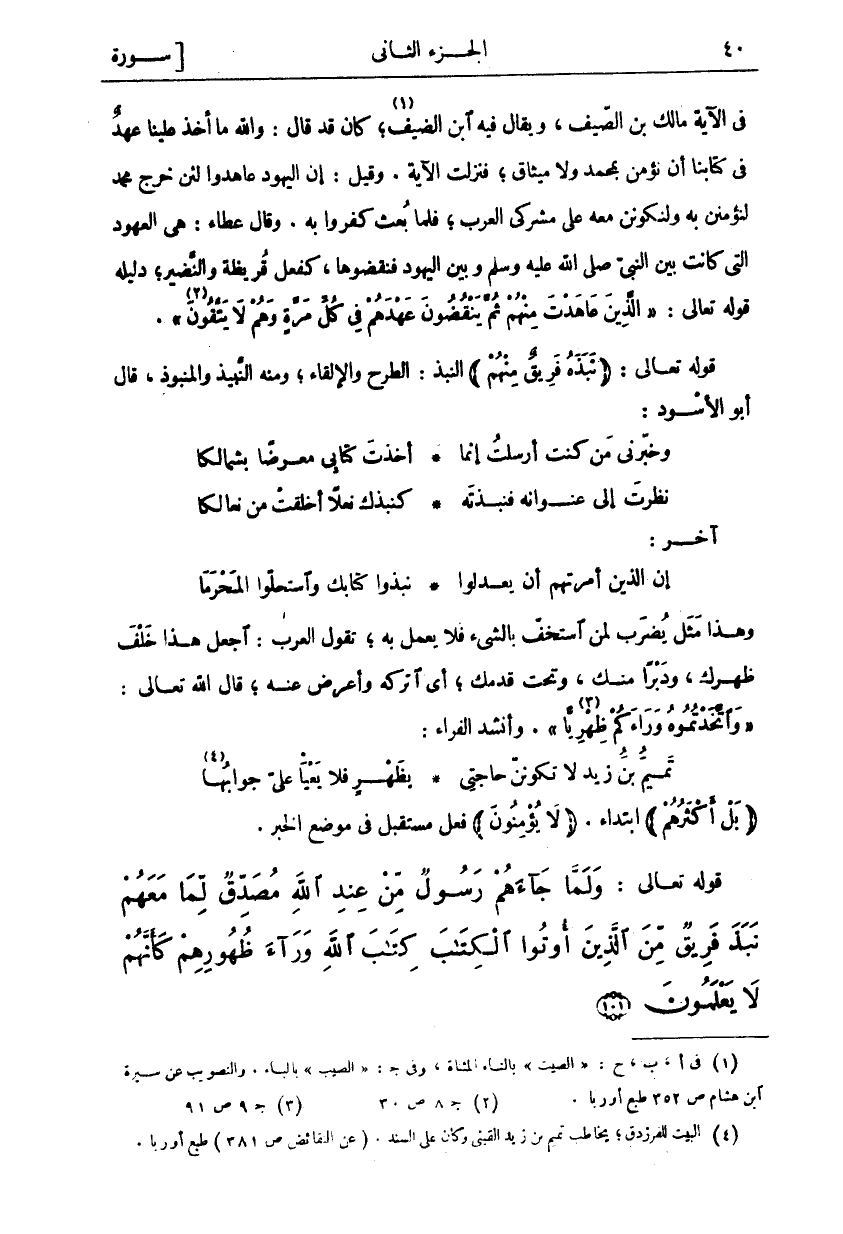 ٤٠ الجـزء الثانى [ ســورة
فى الآية مالك بن الصّيف ، ويقال فيه ٱبن الضيف(١)؛ كان قد قال : والله ما أخذ علينا عهدٌ
فى كتابنا أن نؤمن بمحمد ولا ميثاق ؛ فنزلت الآية . وقيل : إن اليهود عاهدوا لئن خرج محمد
لنؤمنن به ولنكونن معه على مشركى العرب ؛ فلما بُعث كفروا به . وقال عطاء : هى العهود
التى كانت بين النبىّ صلى الله عليه وسلم وبين اليهود فنقضوها ، كفعل قُريظة والنَّضير؛ دليله
قوله تعالى : « الَّذِينَ عَاهَدْتَ مِنْهُمْ ثُمَّ يَنْقُضُونَ عَهْدَهُمْ فِى كُلِّ مَرَّةٍ وَهُمْ لَا يَتَّقُونَ(٢) » .
قوله تعـالى : ﴿ نَبَذَهُ فَرِيقٌ مِنْهُمْ ﴾ النبذ : الطرح والإلقاء ؛ ومنه النَّبِيذ والمنبوذ ، قال
أبو الأسْـود :
وخبّرنى مَن كنت أرسلتُ إنما * أخذتَ كتابِى معـرضًا بشمالكا
نظرتَ إلى عنـوانه فنبـذتَه * كنبذك نعلًا أخلقتْ من نعالكا
آخـر :
إن الذين أمرتهم أن يعـدلوا * نبذوا كتابك وٱستحلّوا المَحْرَمَا
وهـذا مَثَل يُضرَب لمن ٱستخفّ بالشىء فلا يعمل به ؛ تقول العرب : ٱجعل هـذا خَلْفَ
ظهـرك ، ودَبْرًا منـك ، وتحت قدمك ؛ أى ٱتركه وأعرض عنـه ؛ قال الله تعـالى :
« وَٱتَّخَذْتُمُوهُ وَرَاءَكُمْ ظِهْرِيًّا(٣) » . وأنشد الفراء :
تَمِيمُ بْنُ زيد لا تكوننّ حاجتِى * بِظَهْـرٍ فلا يَعْيَا علىّ جوابُهـا(٤)
﴿ بَلْ أَكْثَرُهُمْ ﴾ ابتداء . ﴿ لَا يُؤْمِنُونَ ﴾ فعل مستقبل فى موضع الخبر .
قوله تعالى : وَلَمَّا جَآءَهُمْ رَسُولٌ مِّنْ عِندِ ٱللَّهِ مُصَدِّقٌ لِّمَا مَعَهُمْ
نَبَذَ فَرِيقٌ مِّنَ ٱلَّذِينَ أُوتُوا ٱلْكِتَٰبَ كِتَٰبَ ٱللَّهِ وَرَآءَ ظُهُورِهِمْ كَأَنَّهُمْ
لَا يَعْلَمُونَ ١٠١
(١) فى أ ، ب ، ح : « الصيت » بالتاء المثناة ، وفى جـ : « الصيب » بالباء . والتصويب عن سيرة
ٱبن هشام ص ٣٥٢ طبع أوربا . (٢) جـ ٨ ص ٣٠ (٣) جـ ٩ ص ٩١
(٤) البيت للفرزدق ؛ يخاطب تميم بن زيد القينى وكان على السند . ( عن النقائض ص ٣٨١ ) طبع أوربا .